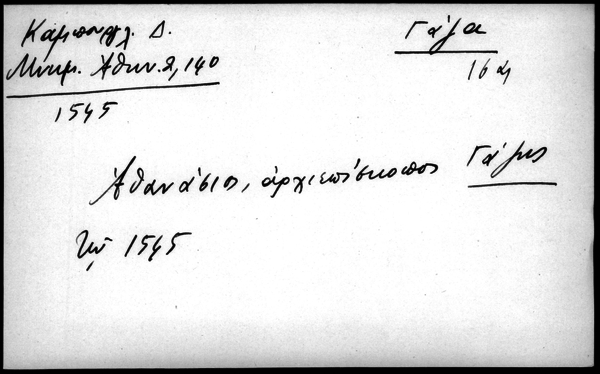 Καμπουρογλ. Δ.
Μνημ. Ἀθην. 2, 140
1545
Γάζα
16 αι
Ἀθανάσιος, ἀρχιεπίσκοπος Γάζης
τῷ 1545